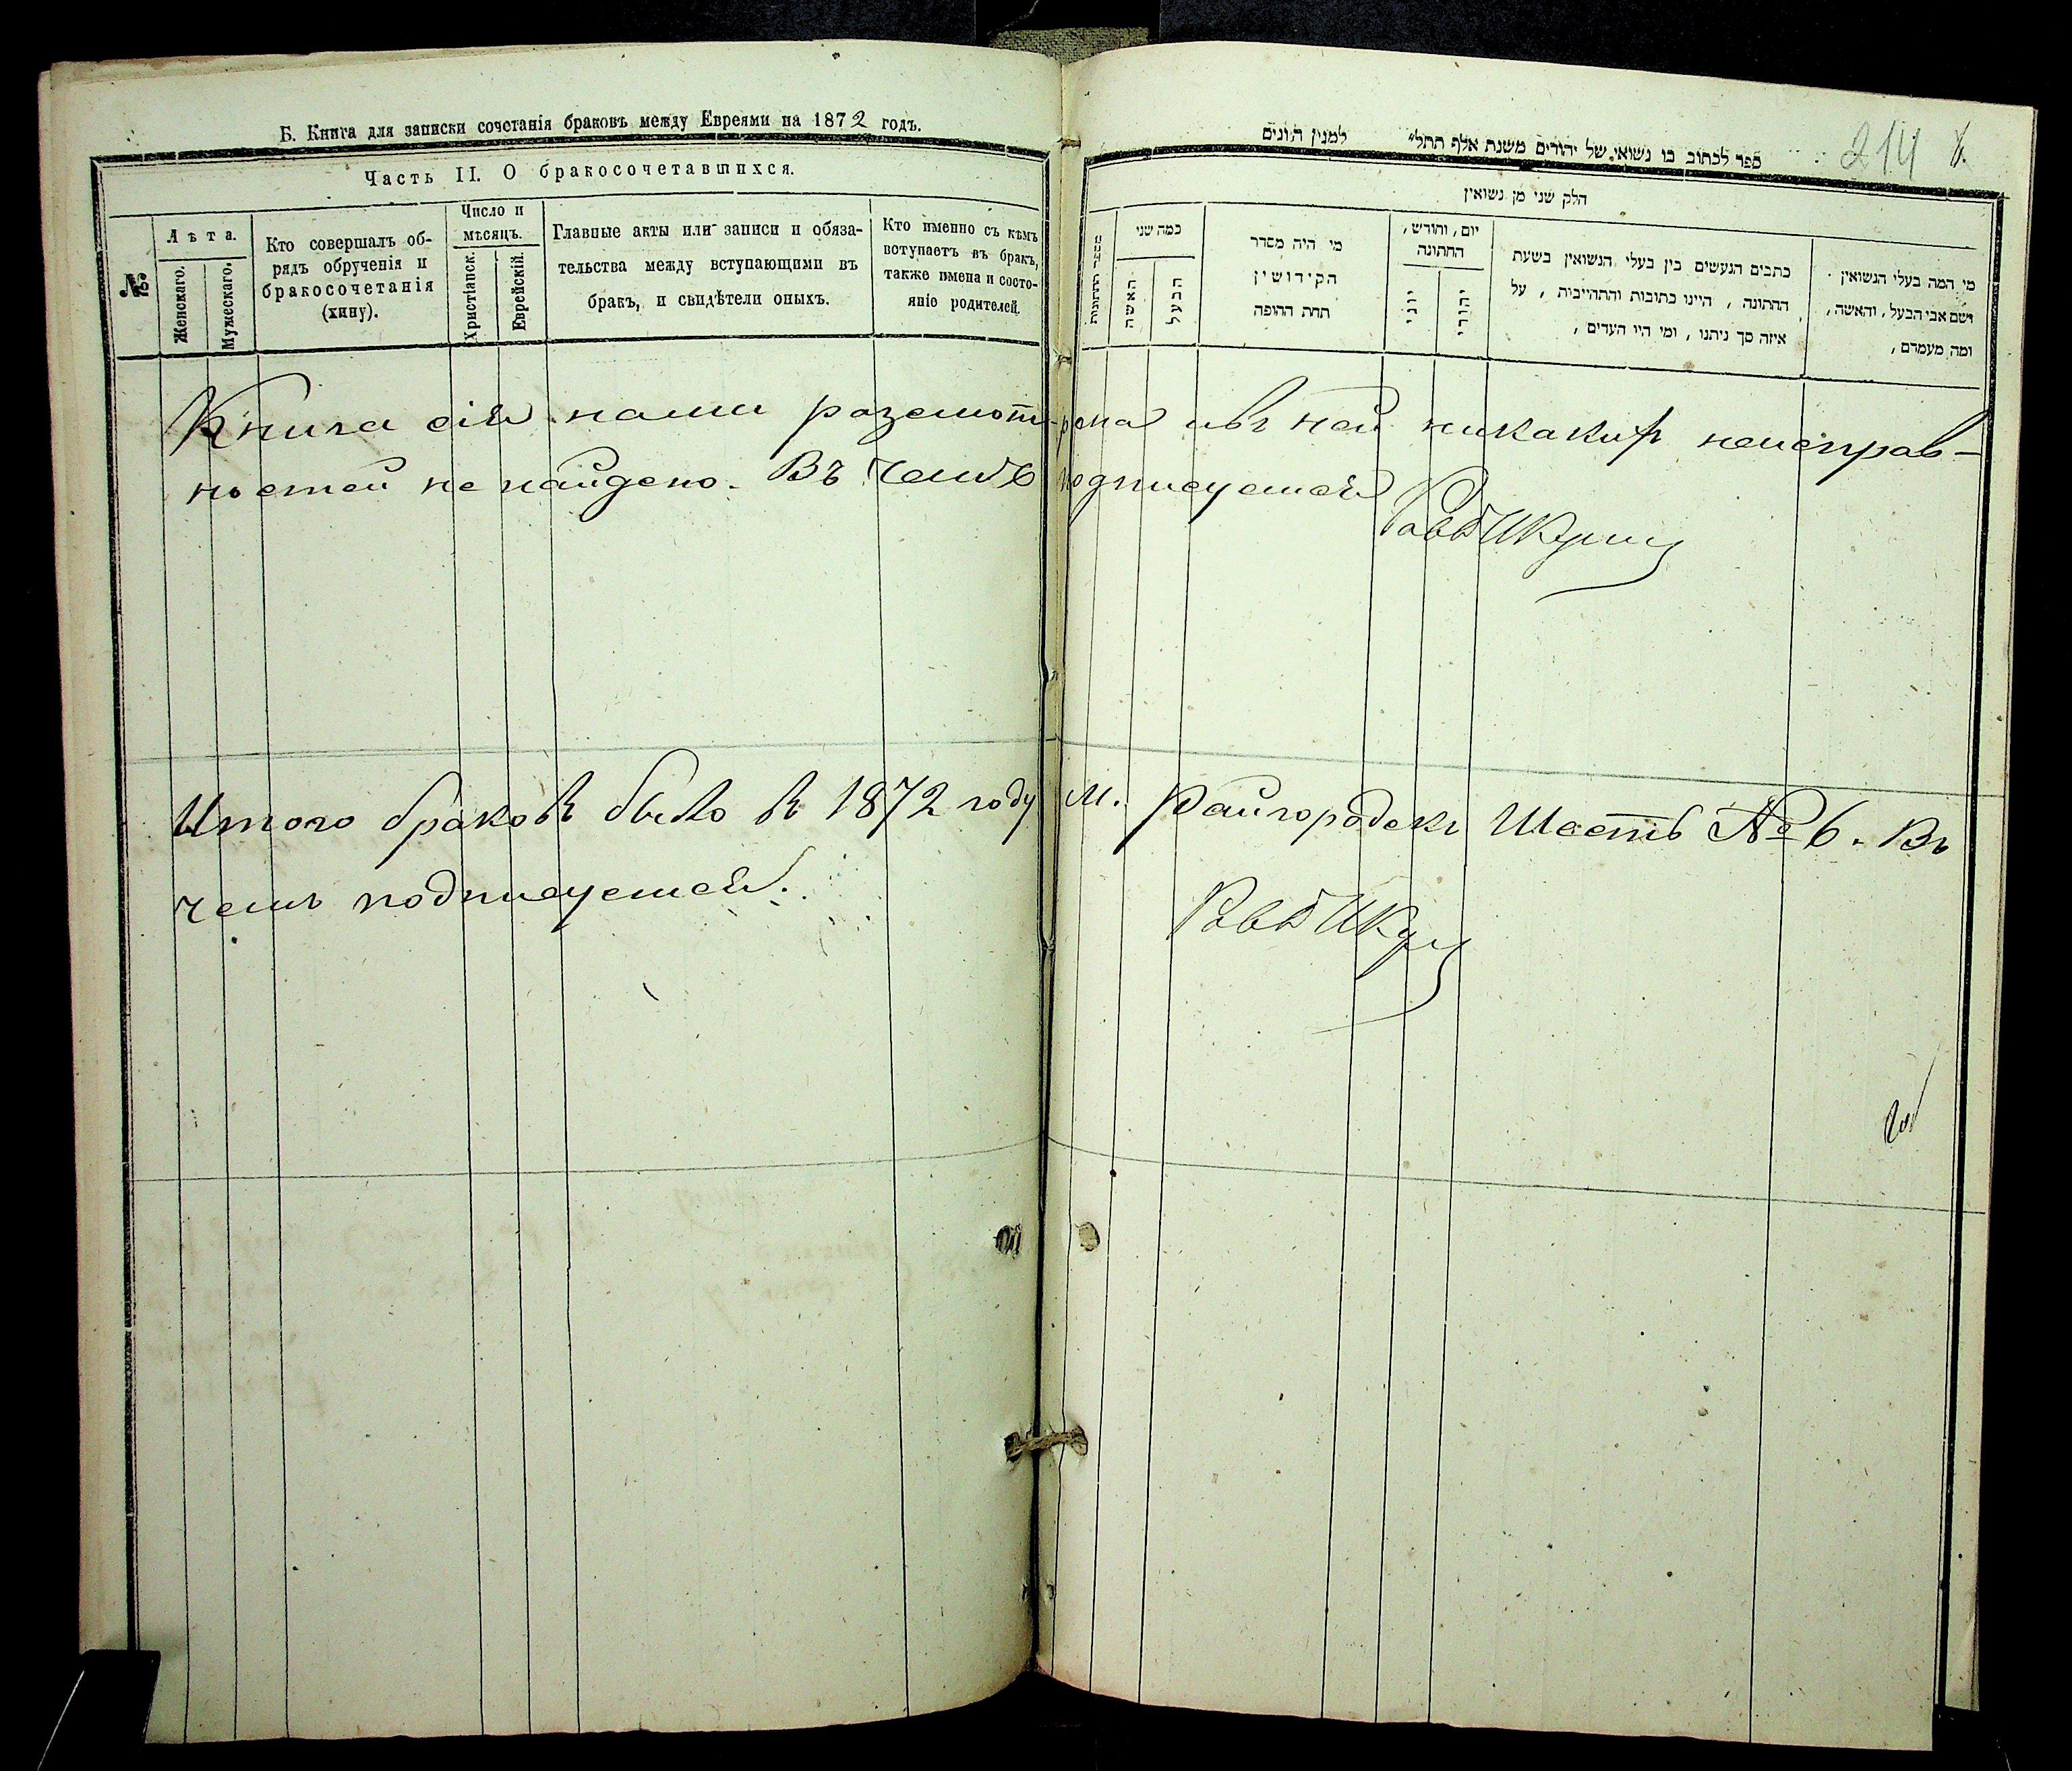 Б. Книга для записки сочетанія браковъ между Евреями на 1872 годъ.
Часть II. О бракосочетавшихся.
№
Лѣта.
Женскаго.
Мужескаго.
Кто совершалъ об-
рядъ обрученія и
бракосочетанія
(хипу).
Число и
мѣсяцъ.
Христіанск.
Еврейскій.
Главные акты или записи и обяза-
тельства между вступающими въ
бракъ, и свидѣтели оныхъ.
Кто именно съ кѣмъ
вступаетъ въ бракъ,
также имена и состо-
яніе родителей.
ספר לכתוב בו נשואי של יהודים משנת אלף תתל״ למנין היונים
214
חלק שני מן נשואין
מספר החתונות
כמה שני
האשה
הבעל
מי היה מסדר
הקידושין
תחת החופה
יום, וחודש,
החתונה
יוני
יהודי
כתבים הנעשים בין בעלי הנשואין בשעת
החתונה, היינו כתובות והתחייבות, על
איזה סך ניתנו, ומי היו העדים,
מי המה בעלי הנשואין
ושם אבי הבעל, והאשה,
ומה מעמדם,
Книга сія нами разсмотрена и въ ней никакихъ неисправ-
ностей не найдено. Въ чемъ подписуемся
Итого браковъ было въ 1872 году м. Райгородскъ Шесть № 6. Въ
чемъ подписуемся.